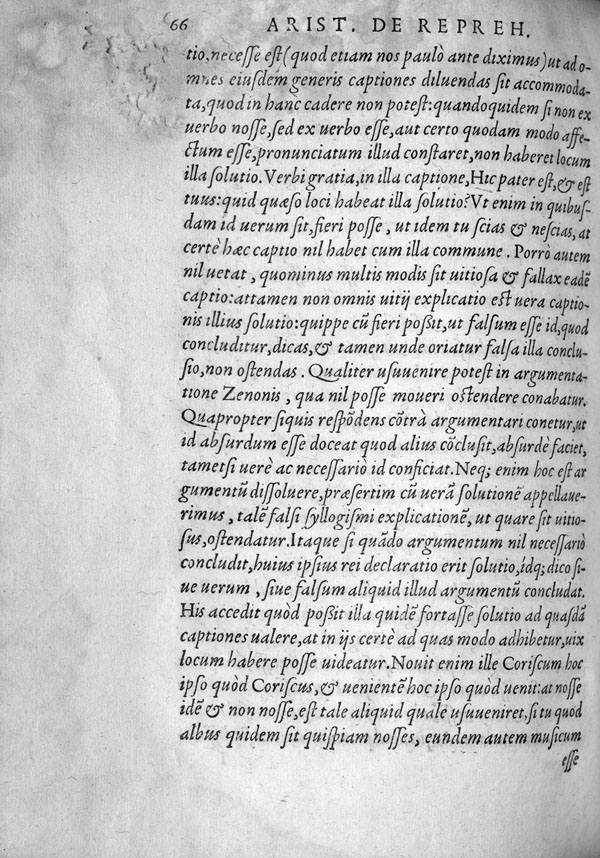 66 ARIST. DE REPREH.
tio, necesse est (quod etiam nos paulò ante diximus) ut ad o-
mnes eiusdem generis captiones diluendas sit accommoda-
ta, quod in hanc cadere non potest: quandoquidem si non ex
uerbo nosse, sed ex uerbo esse, aut certo quodam modo affe-
ctum esse, pronunciatum illud constaret, non haberet locum
illa solutio. Verbi gratia, in illa captione, Hic pater est, & est
tuus: quid quæso loci habeat illa solutio? Vt enim in quibus-
dam id uerum sit, fieri posse, ut idem tu scias & nescias, at
certè hæc captio nil habet cum illa commune. Porrò autem
nil uetat, quominus multis modis sit uitiosa & fallax eadẽ
captio: attamen non omnis uitij explicatio est uera captio-
nis illius solutio: quippe cũ fieri poßit, ut falsum esse id, quod
concluditur, dicas, & tamen unde oriatur falsa illa conclu-
sio, non ostendas. Qualiter usuuenire potest in argumenta-
tione Zenonis, qua nil posse moueri ostendere conabatur.
Quapropter siquis respõdens cõtrà argumentari conetur, ut
id absurdum esse doceat quod alius cõclusit, absurdè faciet,
tametsi uerè ac necessariò id conficiat. Neq; enim hoc est ar
gumentũ dissoluere, præsertim cũ uerã solutionẽ appellaue-
rimus, talẽ falsi syllogismi explicationẽ, ut quare sit uitio-
sus, ostendatur. Itaque si quãdo argumentum nil necessariò
concludit, huius ipsius rei declaratio erit solutio, idq; dico si-
ue uerum, siue falsum aliquid illud argumentũ concludat.
His accedit quòd poßit illa quidẽ fortasse solutio ad quasdã
captiones ualere, at in ijs certè ad quas modo adhibetur, uix
locum habere posse uideatur. Nouit enim ille Coriscum hoc
ipso quòd Coriscus, & uenientẽ hoc ipso quòd uenit: at nosse
idẽ & non nosse, est tale aliquid quale usuueniret, si tu quod
albus quidem sit quispiam nosses, eundem autem musicum
esse